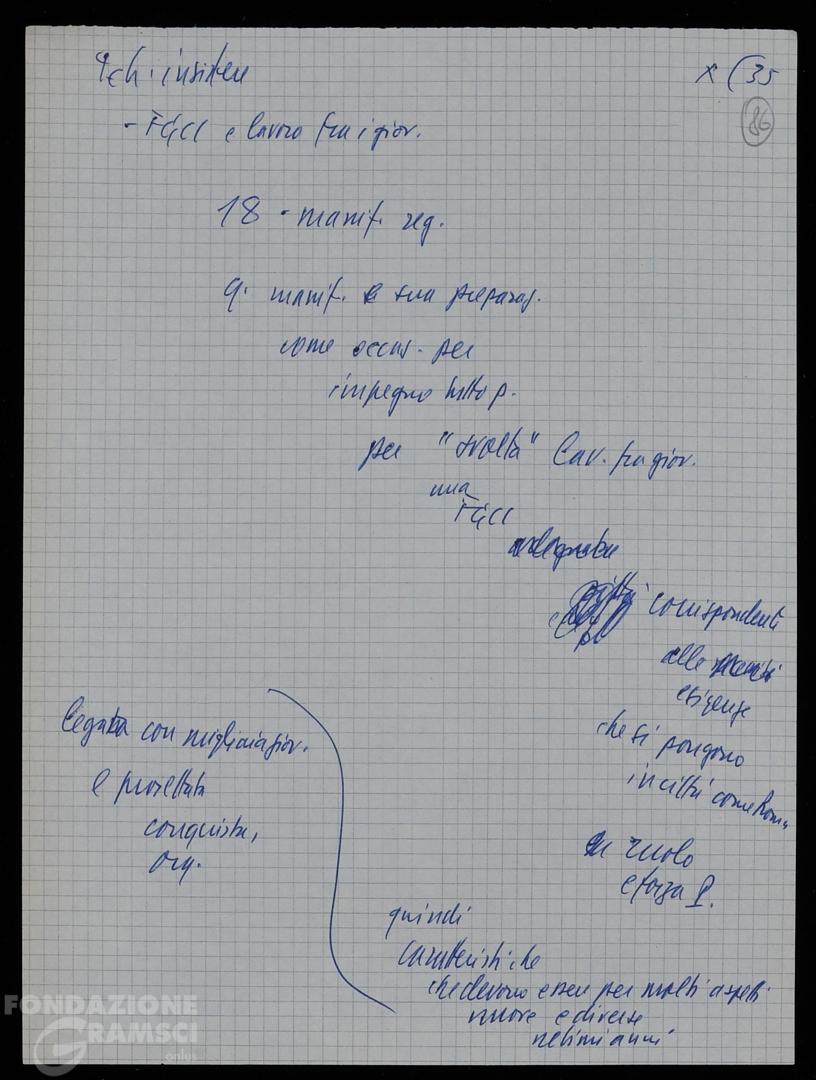 insistere
x (35
86
- FGCI e lavoro fra i giov.
18 - manif. reg.
9. manif. e sua preparaz.
come occas. per
impegno tutto p.
per "svolta" lav. fra giov.
una
FGCI
adeguata
corrispondenti
alle
esigenze
che si pongono
in città come Roma
ruolo
e forza P.
legata con migliaia giov.
e proiettata
conquista,
org.
quindi
caratteristiche
che devono essere per molti aspetti
nuove e diverse
FONDAZIONE
GRAMSCI
onlus